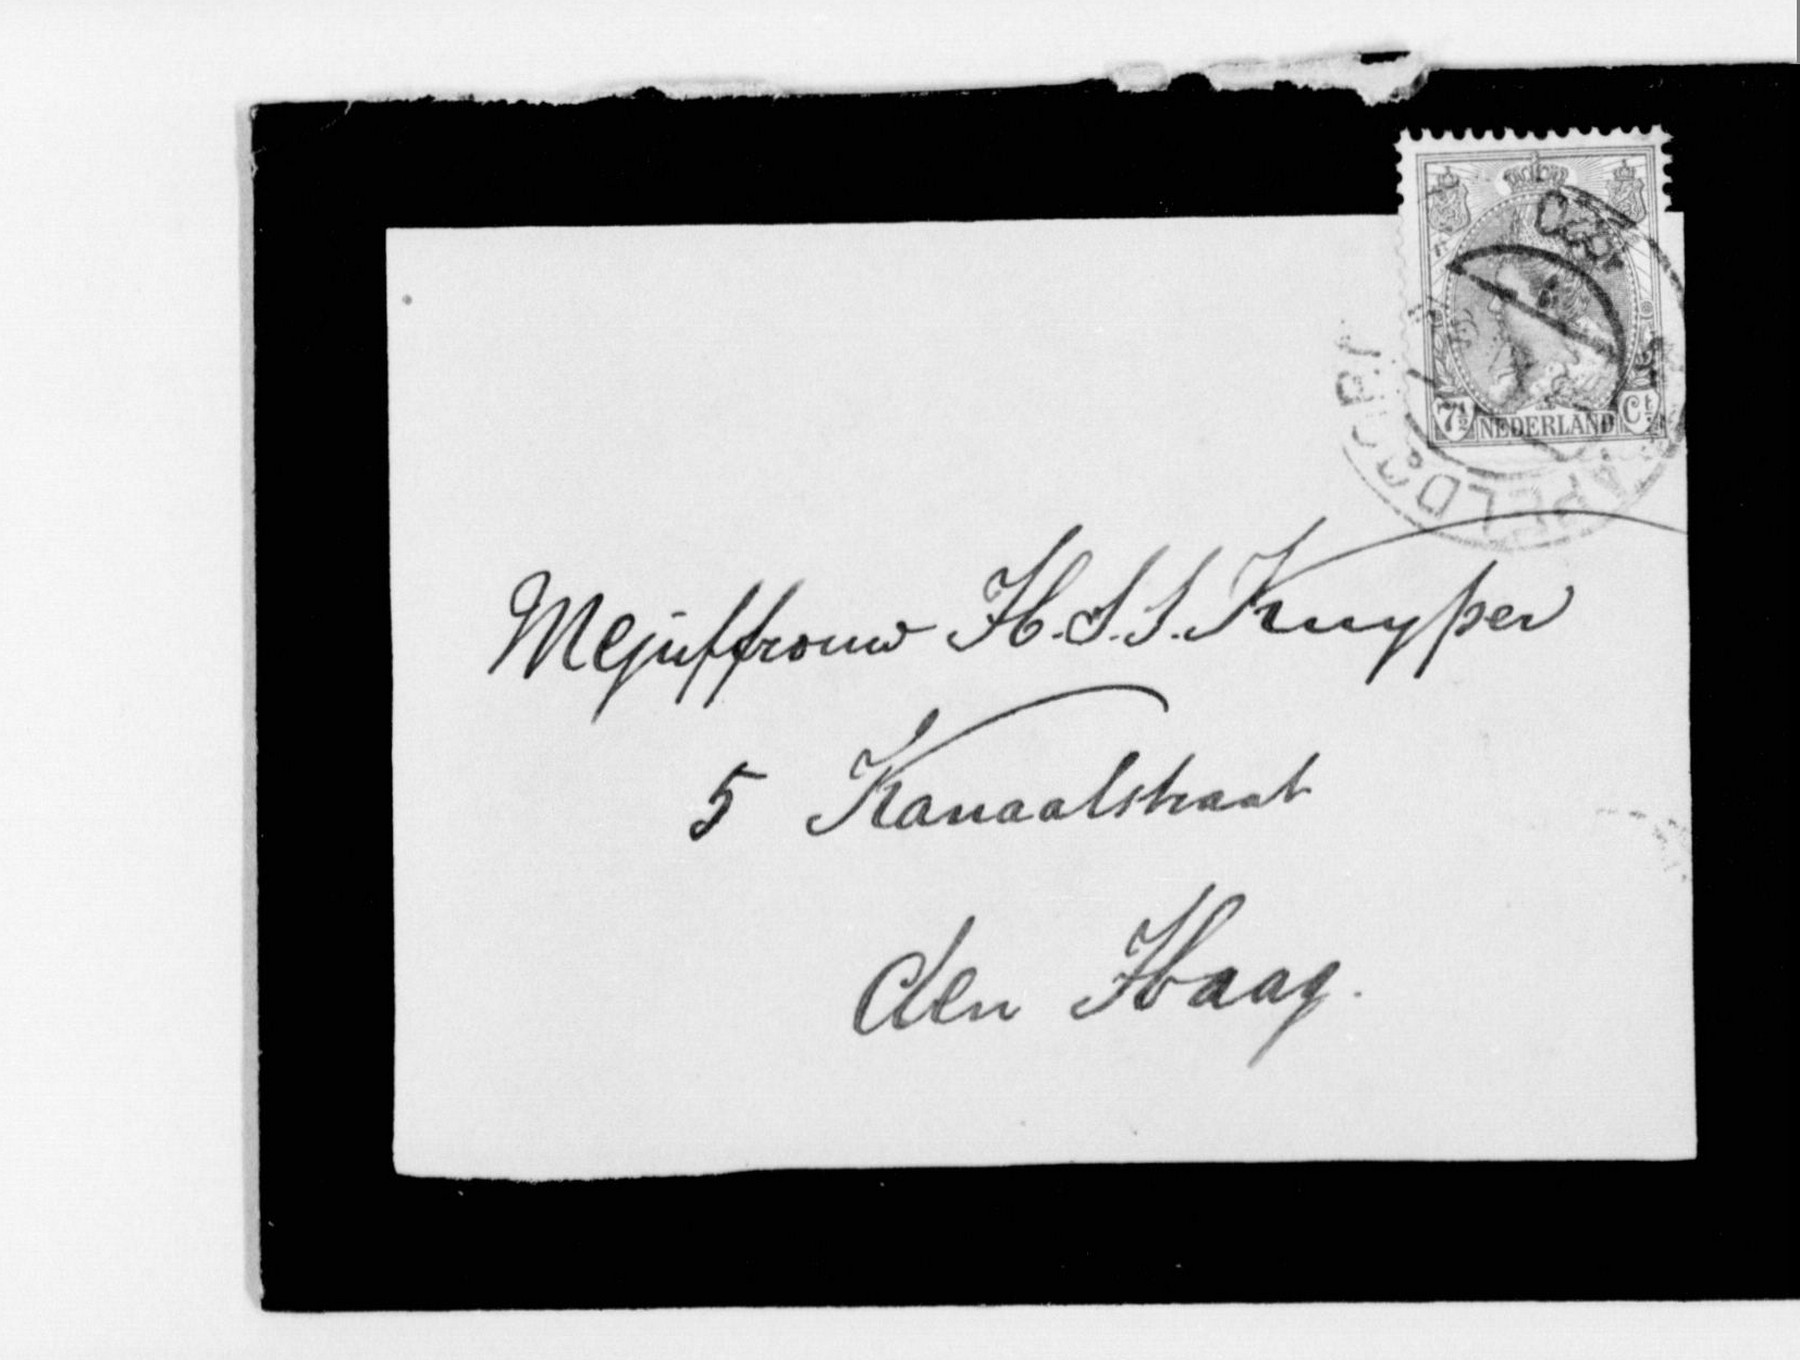 7½ NEDERLAND Ct
APELDOORN
Mejuffrouw H. S. S. Kuyper
5 Kanaalstraat
den Haag.